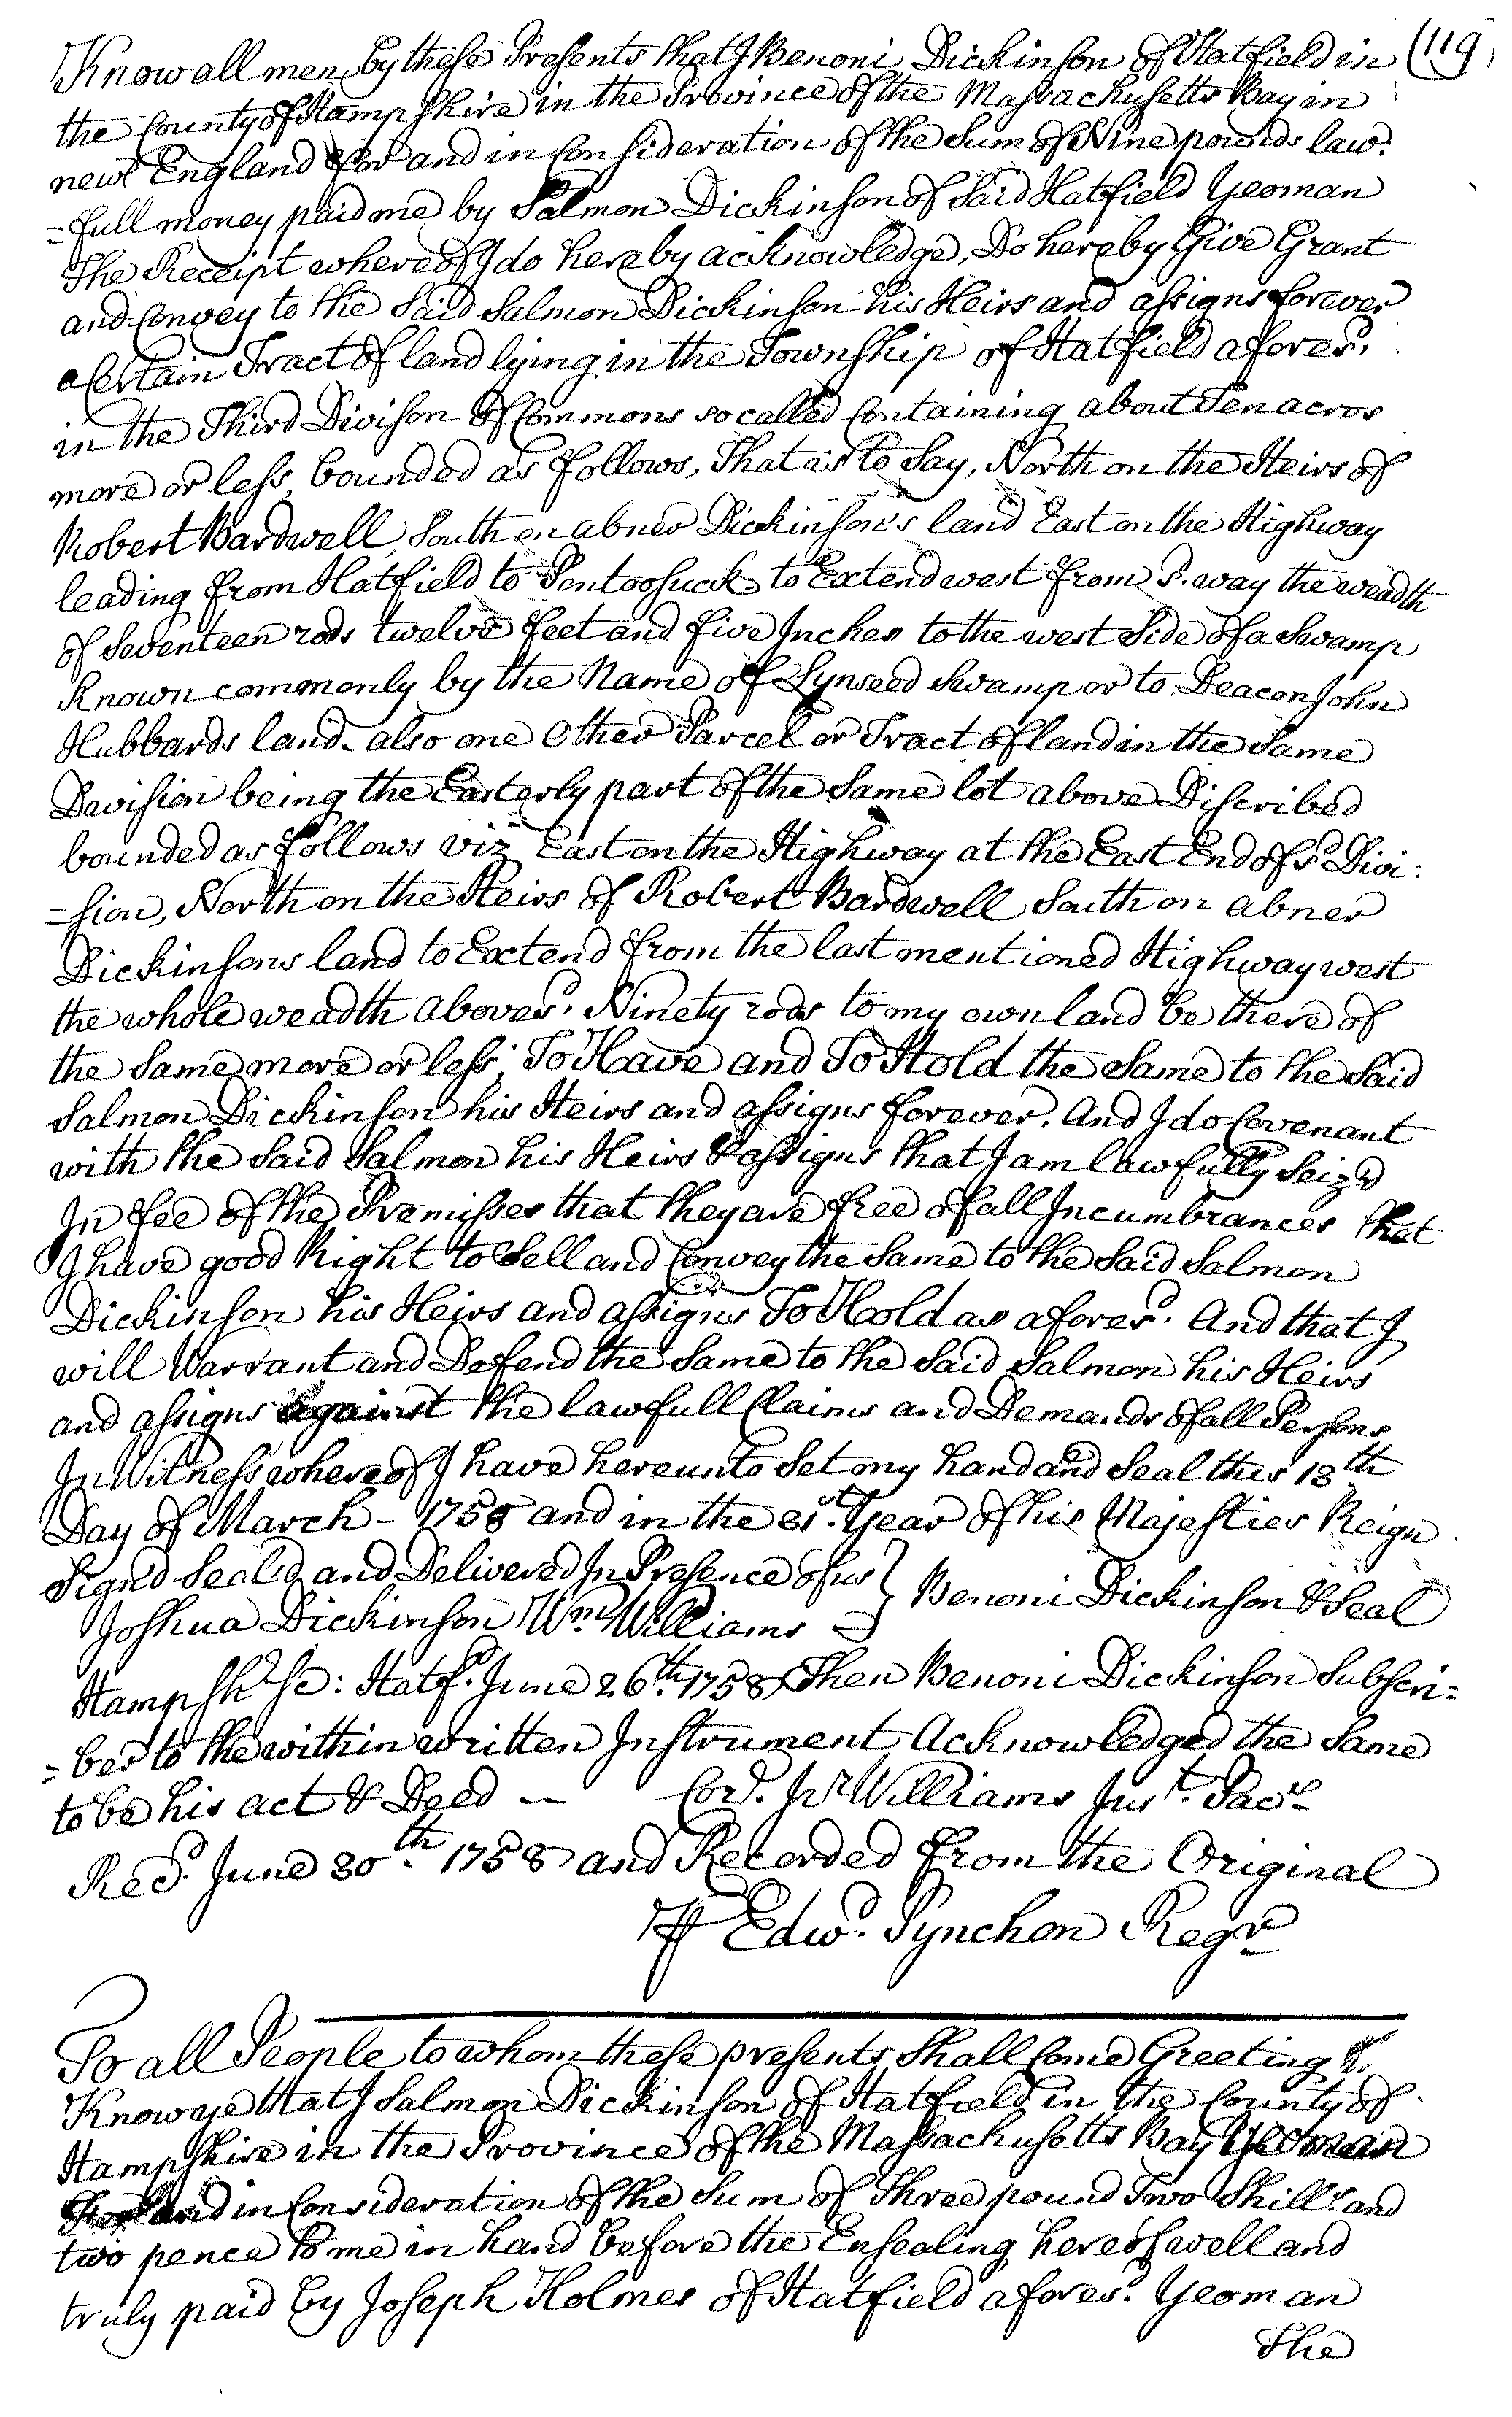 Know all men by these Presents that I Benoni Dickinson of Hatfield in (119
the County of Hampshire in the Province of the Massachusetts Bay in
new England for and in Consideration of the Sum of Nine pounds law:
=full money paid me by Salmon Dickinson of Said Hatfield Yeoman
The Receipt whereof I do hereby acknowledge, Do hereby Give Grant
and Convey to the Said Salmon Dickinson his Heirs and assigns forever
a Certain Tract of land lying in the Township of Hatfield afores.d
in the Third Divison of Commons so called Containing about Ten acros
more or less, bounded as follows, That is to Say, North on the Heirs of
Robert Bardwell, South on abner Dickinson's land East on the Highway
leading from Hatfield to Pentoosuck to Extend west from s.d way the weadth
of Seventeen rods twelve feet and five Inches to the west Side of a Swamp
Known commonly by the Name of Lynseed Swamp or to Deacon John
Hubbards land. also one Other Parcel or Tract of land in the Same
Davision being the Easterly part of the Same lot above Discribed
bounded as follows viz East on the Highway at the East End of s.d Divi:
=sion, North on the Heirs of Robert Bardwell South on abner
Dickinsons land to Extend from the last mentioned Highway west
the whole weadth aboves.d Ninety rods to my own land be there of
the Same more or less; To Have and To Hold the Same to the Said
Salmon Dickinson his Heirs and assigns forever. And I do Covenant
with the Said Salmon his Heirs & assigns that I am lawfully Seiz'd
In fee of the Premisses that they are free of all Incumbrances that
I have good Right to Sell and Convey the Same to the Said Salmon
Dickinson his Heirs and assigns To Hoold as afores.d And that I
will Warrant and Defend the Same to the Said Salmon his Heirs
and assigns against the lawfull Claims and Demands of all Persons
In Witness whereof I have hereunto Set my hand and Seal this 13th
Day of March - 1758 and in the 31st. Year of his Majesties Reign
Sign'd Seal'd and Delivered In Presence of us } Benoni Dickinson & Seal
Joshua Dickinson W.m Williams
Hampsh.r Sc: Hatf.d June 26th. 1758 Then Benoni Dickinson Subscri=
=ber to the within written Instrument Acknowledged the Same
to be his act & Deed -- Cor.m W.m Williams Jus.t Pac.s
Rec.d June 30th. 1758 and Recorded from the Original
℔ Edw.d Pynchon Reg.r
To all People to whom these presents Shall Come Greeting &.
Know ye that I Salmon Dickinson of Hatfield in the County of
Hampshire in the Province of the Massachusetts Bay Yeoman
For and in Consideration of the Sum of Three pound Two Shill.s and
two pence to me in hand before the Ensealing hereof well and
truly paid by Joseph Holmes of Hatfield afores.d Yeoman
The